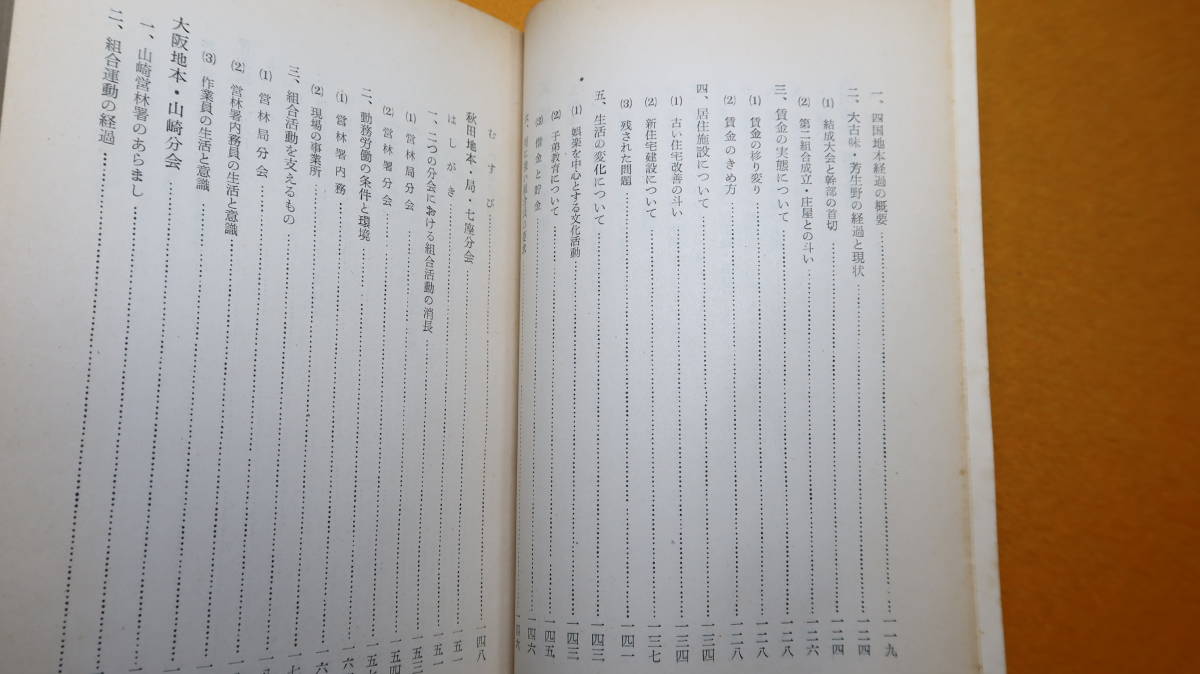 一、四国地本経過の概要……一一九
二、大古味・芳生野の経過と現状……一二四
⑴ 結成大会と幹部の首切……一二四
⑵ 第二組合成立・庄屋との斗い……一二六
三、賃金の実態について……一二八
⑴ 賃金の移り変り……一二八
⑵ 賃金のきめ方……一二八
四、居住施設について……一三四
⑴ 古い住宅改善の斗い……一三四
⑵ 新住宅建設について……一三七
⑶ 残された問題……一四一
五、生活の変化について……一四三
⑴ 娯楽を中心とする文化活動……一四三
⑵ 子弟教育について……一四五
⑶ 借金と貯金……一四六
一四六
むすび……一四八
秋田地本・局・七座分会……一五一
はしがき……一五一
一、二つの分会における組合活動の消長……一五三
⑴ 営林局分会……
⑵ 営林署分会……
二、勤務労働の条件と環境……
⑴ 営林署内務……
⑵ 現場の事業所……
三、組合活動を支えるもの……
⑴ 営林局分会……
⑵ 営林署内務員の生活と意識……
⑶ 作業員の生活と意識……
大阪地本・山崎分会……
一、山崎営林署のあらまし……
二、組合運動の経過……